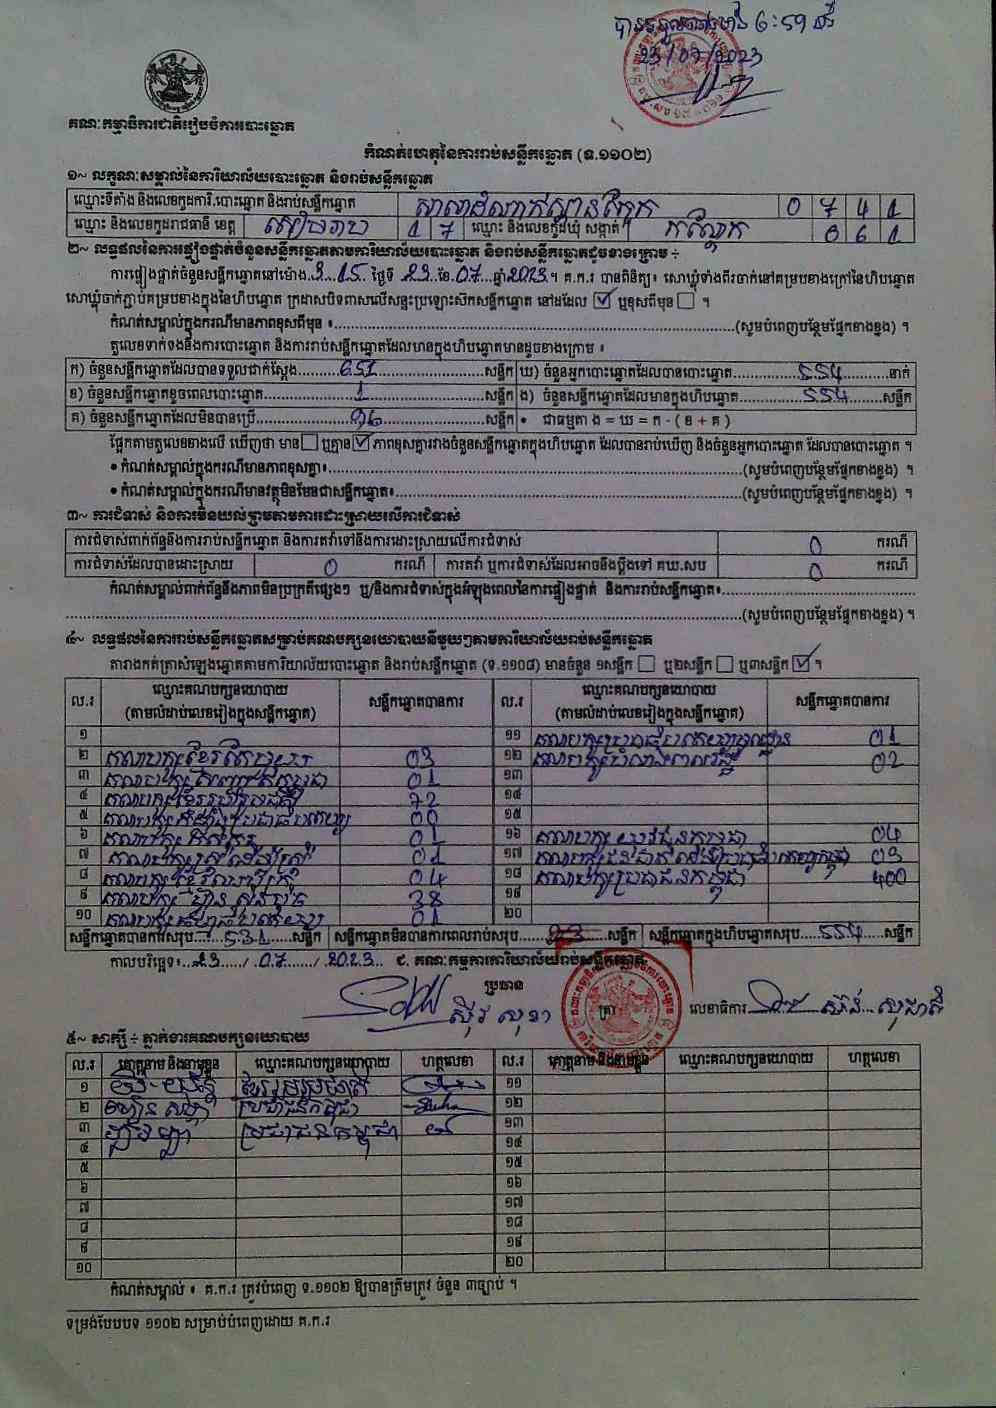 បានទទួលនៅម៉ោង 6:59 នាទី
23/07/2023
គណៈកម្មាធិការជាតិរៀបចំការបោះឆ្នោត
កំណត់ហេតុនៃការរាប់សន្លឹកឆ្នោត (ទ.១១០២)
១~ លក្ខណៈសម្គាល់នៃការិយាល័យបោះឆ្នោត និងរាប់សន្លឹកឆ្នោត
ឈ្មោះទីតាំង និងលេខកូដការិ.បោះឆ្នោត និងរាប់សន្លឹកឆ្នោត សាលាដំណាក់ស្ពានក្អែក 0 7 4 1
ឈ្មោះ និងលេខកូដរាជធានី ខេត្ត សៀមរាប 1 7 ឈ្មោះ និងលេខកូដឃុំ សង្កាត់
២~ លទ្ធផលនៃការផ្ទៀងផ្ទាត់ចំនួនសន្លឹកឆ្នោតតាមការិយាល័យបោះឆ្នោត និងរាប់សន្លឹកឆ្នោតដូចខាងក្រោម ÷
ការផ្ទៀងផ្ទាត់ចំនួនសន្លឹកឆ្នោតនៅម៉ោង 3:15 ថ្ងៃទី 23 ខែ 07 ឆ្នាំ 2023។ គ.ក.រ បានពិនិត្យ៖ សោឃ្លុំទាំងពីរចាក់នៅគម្របខាងក្រៅនៃហិបឆ្នោត
សោឃ្លុំចាក់ភ្ជាប់គម្របខាងក្នុងនៃហិបឆ្នោត ក្រដាសបិទពាសលើសន្ទះប្រឡោះស៊កសន្លឹកឆ្នោត នៅដដែល ☑ ឬខុសពីមុន ☐ ។
កំណត់សម្គាល់ក្នុងករណីមានភាពខុសពីមុន ៖..........(សូមបំពេញបន្ថែមផ្នែកខាងខ្នង) ។
តួលេខទាក់ទងនឹងការបោះឆ្នោត និងការរាប់សន្លឹកឆ្នោតដែលមានក្នុងហិបឆ្នោតមានដូចខាងក្រោម ៖
ក) ចំនួនសន្លឹកឆ្នោតដែលបានទទួលជាក់ស្តែង 651 សន្លឹក ឃ) ចំនួនអ្នកបោះឆ្នោតដែលបានបោះឆ្នោត 554 នាក់
ខ) ចំនួនសន្លឹកឆ្នោតខូចពេលបោះឆ្នោត 1 សន្លឹក ង) ចំនួនសន្លឹកឆ្នោតដែលមានក្នុងហិបឆ្នោត 554 សន្លឹក
គ) ចំនួនសន្លឹកឆ្នោតដែលមិនបានប្រើ 96 សន្លឹក • ជាធម្មតា ង = ឃ = ក - ( ខ + គ )
ផ្អែកតាមតួលេខខាងលើ ឃើញថា មាន ☐ ឬគ្មាន ☑ ភាពខុសគ្នារវាងចំនួនសន្លឹកឆ្នោតក្នុងហិបឆ្នោត ដែលបានរាប់ឃើញ និងចំនួនអ្នកបោះឆ្នោត ដែលបានបោះឆ្នោត ។
• កំណត់សម្គាល់ក្នុងករណីមានភាពខុសគ្នា៖..........(សូមបំពេញបន្ថែមផ្នែកខាងខ្នង) ។
• កំណត់សម្គាល់ក្នុងករណីមានវត្ថុមិនមែនជាសន្លឹកឆ្នោត៖..........(សូមបំពេញបន្ថែមផ្នែកខាងខ្នង) ។
៣~ ការជំទាស់ និងការមិនយល់ព្រមតាមការដោះស្រាយលើការជំទាស់
ការជំទាស់ពាក់ព័ន្ធនឹងការរាប់សន្លឹកឆ្នោត និងការតវ៉ាទៅនឹងការដោះស្រាយលើការជំទាស់ 0 ករណី
ការជំទាស់ដែលបានដោះស្រាយ 0 ករណី ការតវ៉ា ឬការជំទាស់ដែលអាចនឹងប្តឹងទៅ គឃ.សប 0 ករណី
កំណត់សម្គាល់ពាក់ព័ន្ធនឹងភាពមិនប្រក្រតីផ្សេងៗ ឬ/និងការជំទាស់ក្នុងអំឡុងពេលនៃការផ្ទៀងផ្ទាត់ និងការរាប់សន្លឹកឆ្នោត៖..........
..........(សូមបំពេញបន្ថែមផ្នែកខាងខ្នង) ។
៤~ លទ្ធផលនៃការរាប់សន្លឹកឆ្នោតសម្រាប់គណបក្សនយោបាយនីមួយៗតាមការិយាល័យរាប់សន្លឹកឆ្នោត
តារាងកត់ត្រាសំឡេងឆ្នោតតាមការិយាល័យបោះឆ្នោត និងរាប់សន្លឹកឆ្នោត (ទ.១១០៨) មានចំនួន ១សន្លឹក ☐ ឬ២សន្លឹក ☐ ឬ៣សន្លឹក ☑ ។
ល.រ ឈ្មោះគណបក្សនយោបាយ (តាមលំដាប់លេខរៀងក្នុងសន្លឹកឆ្នោត) សន្លឹកឆ្នោតបានការ ល.រ ឈ្មោះគណបក្សនយោបាយ (តាមលំដាប់លេខរៀងក្នុងសន្លឹកឆ្នោត) សន្លឹកឆ្នោតបានការ
១ ១១ គណបក្សប្រជាធិបតេយ្យមូលដ្ឋាន 01
២ គណបក្សខ្មែរតែមួយ 03 ១២ 02
៣ គណបក្ស 01 ១៣
៤ គណបក្សខ្មែររួបរួមជាតិ 72 ១៤
៥ គណបក្សកម្លាំងប្រជាធិបតេយ្យ 00 ១៥
៦ គណបក្សកសិករ 01 ១៦ គណបក្សយុវជនកម្ពុជា 04
៧ គណបក្សស្រីដើម្បីស្រី 01 ១៧ 03
៨ 04 ១៨ គណបក្សប្រជាជនកម្ពុជា 400
៩ គណបក្សហ្វ៊ុនស៊ិនប៉ិច 38 ១៩
១០ គណបក្សធម្មាធិបតេយ្យ 01 ២០
សន្លឹកឆ្នោតបានការសរុប 531 សន្លឹក សន្លឹកឆ្នោតមិនបានការពេលរាប់សរុប 23 សន្លឹក សន្លឹកឆ្នោតក្នុងហិបឆ្នោតសរុប 554 សន្លឹក
កាលបរិច្ឆេទ៖ 23 / 07 / 2023 ជ. គណៈកម្មការការិយាល័យរាប់សន្លឹកឆ្នោត
ប្រធាន
ស៊ីវ សុខា ត្រា លេខាធិការ
៥~ សាក្សី ÷ ភ្នាក់ងារគណបក្សនយោបាយ
ល.រ គោត្តនាម និងនាមខ្លួន ឈ្មោះគណបក្សនយោបាយ ហត្ថលេខា ល.រ គោត្តនាម និងនាមខ្លួន ឈ្មោះគណបក្សនយោបាយ ហត្ថលេខា
១ ខ្មែររួបរួមជាតិ ១១
២ ប្រជាជនកម្ពុជា ១២
៣ ប្រជាជនកម្ពុជា ១៣
៤ ១៤
៥ ១៥
៦ ១៦
៧ ១៧
៨ ១៨
៩ ១៩
១០ ២០
កំណត់សម្គាល់ ៖ គ.ក.រ ត្រូវបំពេញ ទ.១១០២ ឱ្យបានត្រឹមត្រូវ ចំនួន ៣ច្បាប់ ។
ទម្រង់បែបបទ ១១០២ សម្រាប់បំពេញដោយ គ.ក.រ